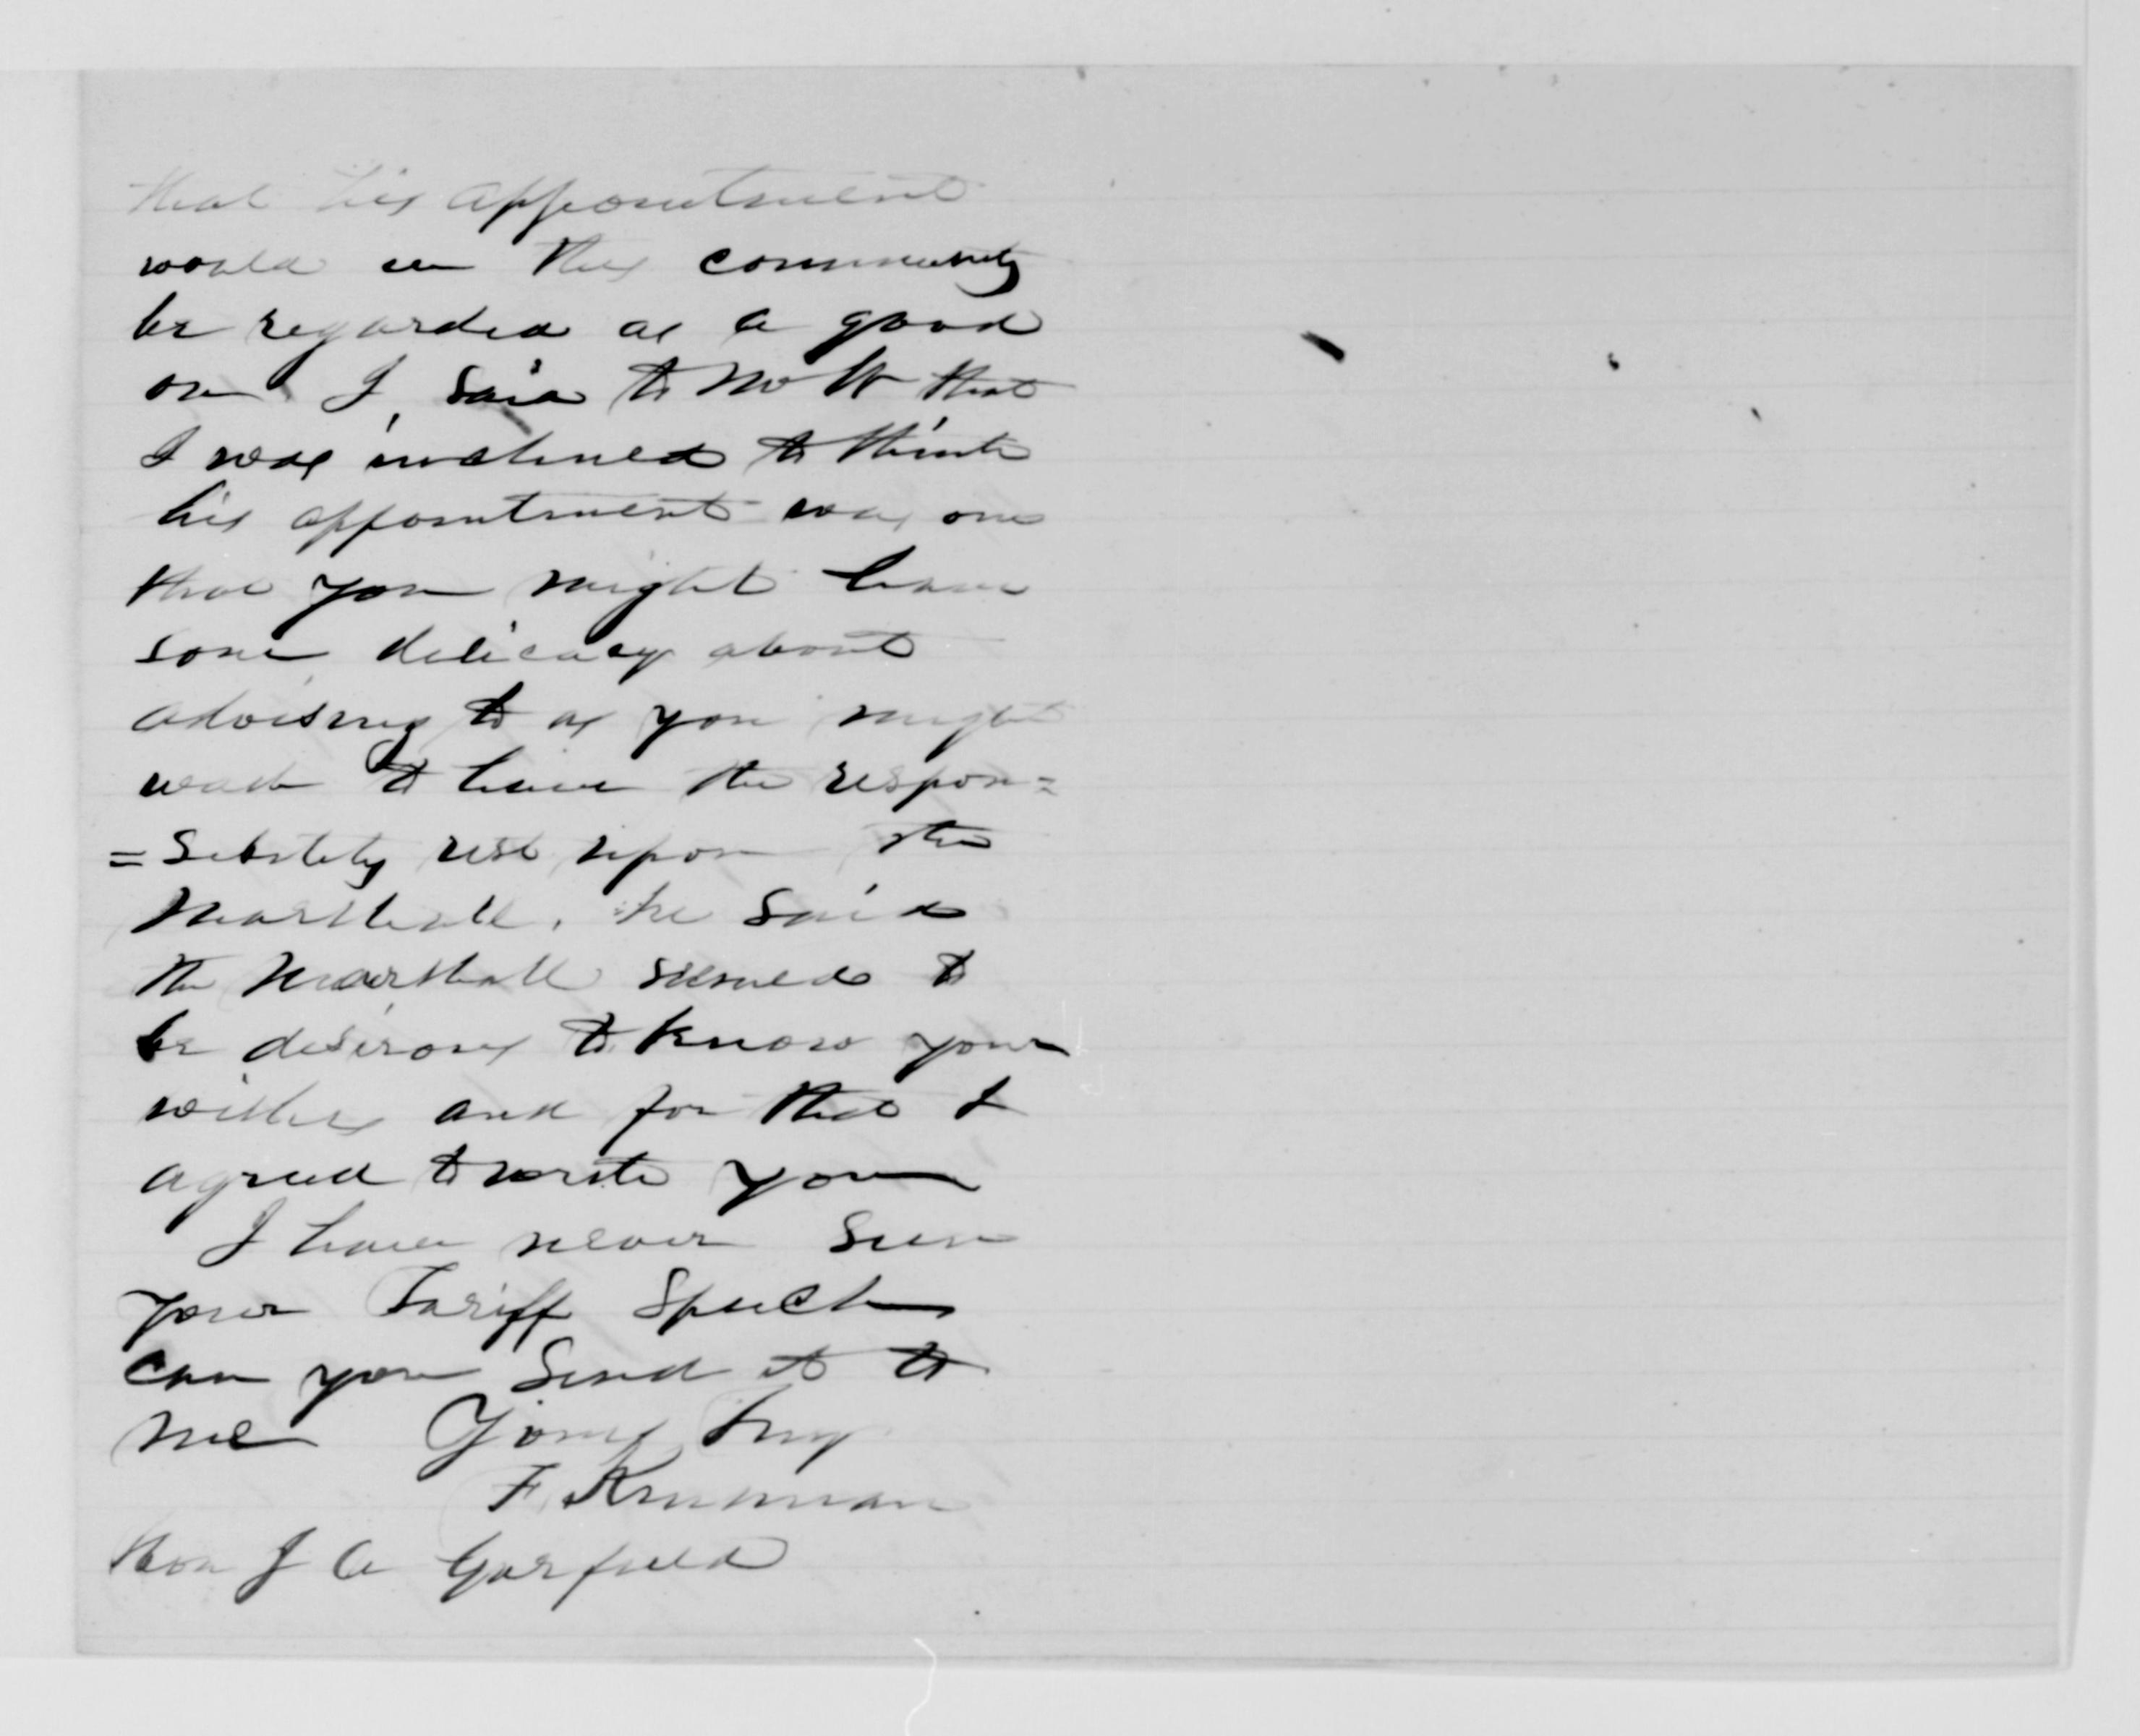 that his appointment
would in this community
be regarded as a good
one I said to Mr W that
I was inclined to think
his appointment was one
that you might have
some delicacy about
advising to as you might
wish to have the respon=
=sibility rest upon the
Marshall. he said
the Marshall seemed to
be desirous to know your
wishes and for that I
agreed to write you
I have never seen
your Tariff Speech
can you send it to
me Yours Truly
F. Kinsman
Hon J A Garfield